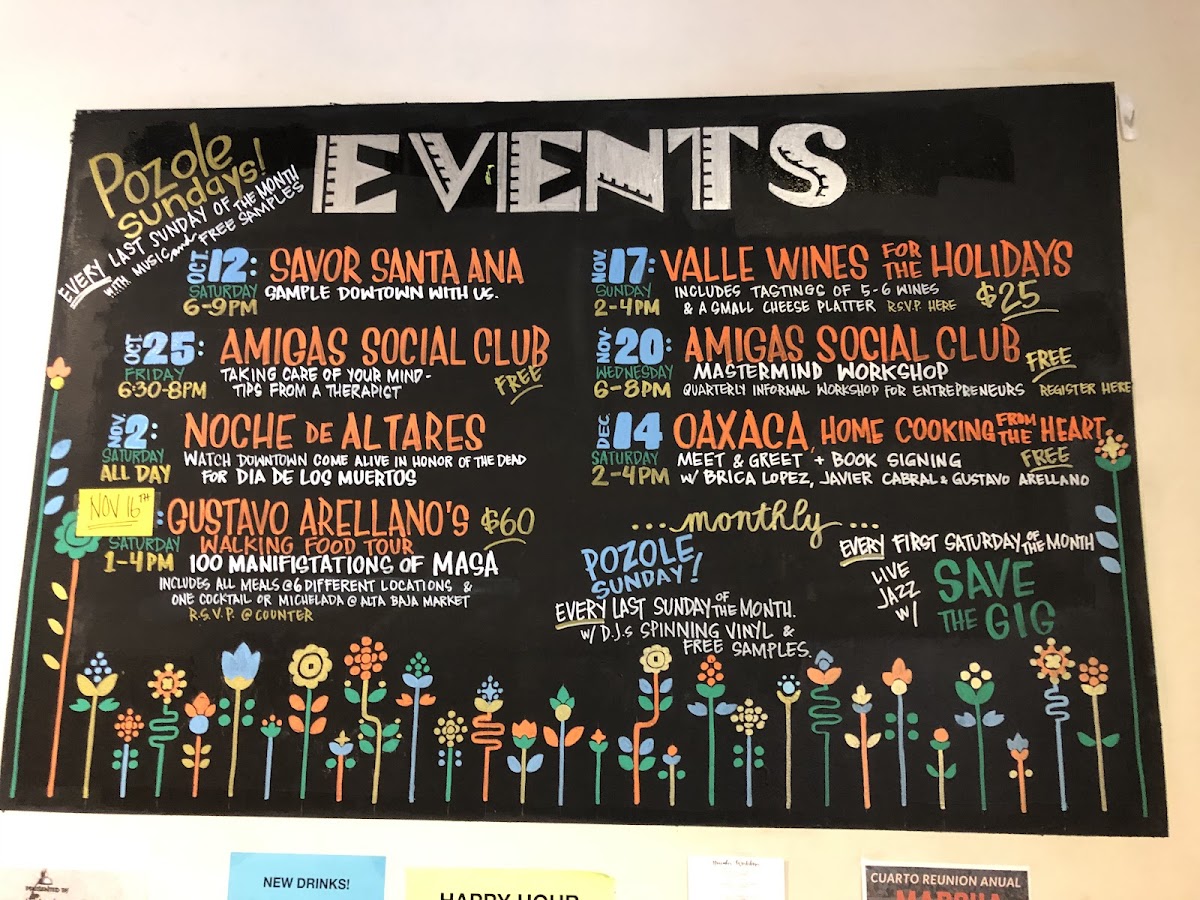 EVENTS
Pozole
Sundays!
EVERY LAST SUNDAY OF THE MONTH
WITH MUSIC and FREE SAMPLES
OCT. 12: SAVOR SANTA ANA
SATURDAY SAMPLE DOWTOWN WITH US.
6-9PM
OCT. 25: AMIGAS SOCIAL CLUB
FRIDAY TAKING CARE OF YOUR MIND-
6:30-8PM TIPS FROM A THERAPIST FREE
NOV. 2: NOCHE DE ALTARES
SATURDAY WATCH DOWNTOWN COME ALIVE IN HONOR OF THE DEAD
ALL DAY FOR DIA DE LOS MUERTOS
NOV 16TH : GUSTAVO ARELLANO'S $60
SATURDAY WALKING FOOD TOUR
1-4PM 100 MANIFISTATIONS OF MASA
INCLUDES ALL MEALS @ 6 DIFFERENT LOCATIONS &
ONE COCKTAIL OR MICHELADA @ ALTA BAJA MARKET
R.S.V.P. @ COUNTER
NOV. 17: VALLE WINES FOR THE HOLIDAYS
SUNDAY INCLUDES TASTINGS OF 5-6 WINES
2-4PM & A SMALL CHEESE PLATTER R.S.V.P. HERE $25
NOV. 20: AMIGAS SOCIAL CLUB FREE
WEDNESDAY MASTERMIND WORKSHOP
6-8PM QUARTERLY INFORMAL WORKSHOP FOR ENTREPRENEURS REGISTER HERE
DEC. 14 OAXACA, HOME COOKING FROM THE HEART
SATURDAY MEET & GREET + BOOK SIGNING FREE
2-4PM W/ BRICA LOPEZ, JAVIER CABRAL & GUSTAVO ARELLANO
... monthly ...
POZOLE
SUNDAY!
EVERY LAST SUNDAY OF THE MONTH.
W/ D.J.s SPINNING VINYL &
FREE SAMPLES.
EVERY FIRST SATURDAY OF THE MONTH
LIVE
JAZZ
W/
SAVE
THE GIG
PRESENTED BY
NEW DRINKS!
HAPPY HOUR
CUARTO REUNION ANUAL
MARCHA